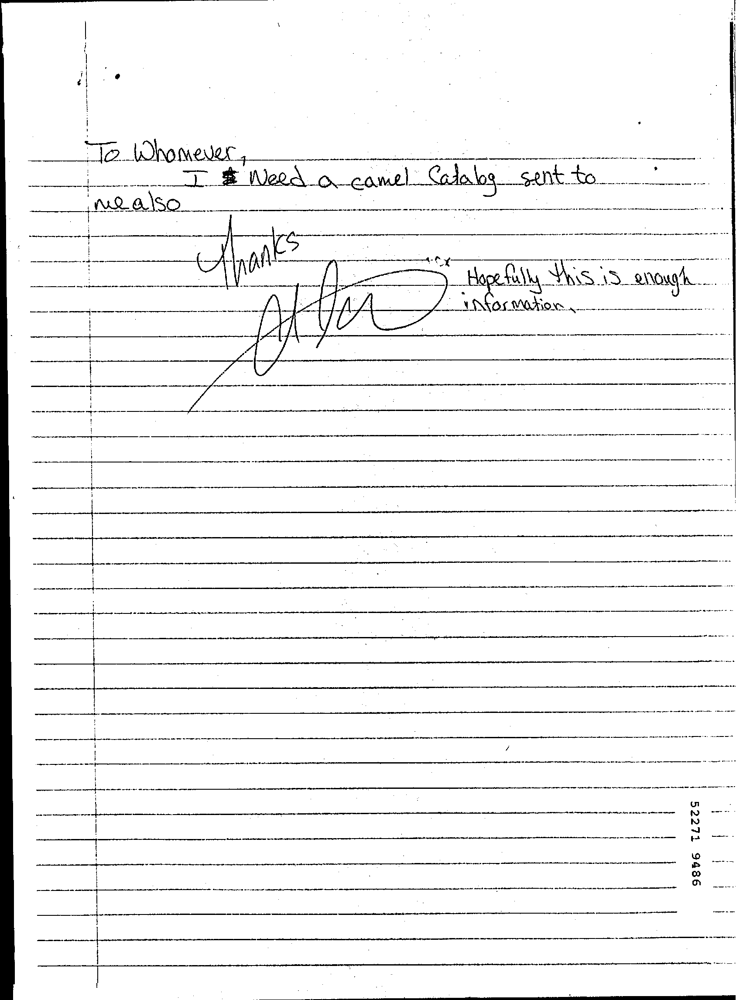 To Whomever,
I Need a camel Catalog sent to
me also
Thanks
Hopefully this is enough
information.
52271 9486